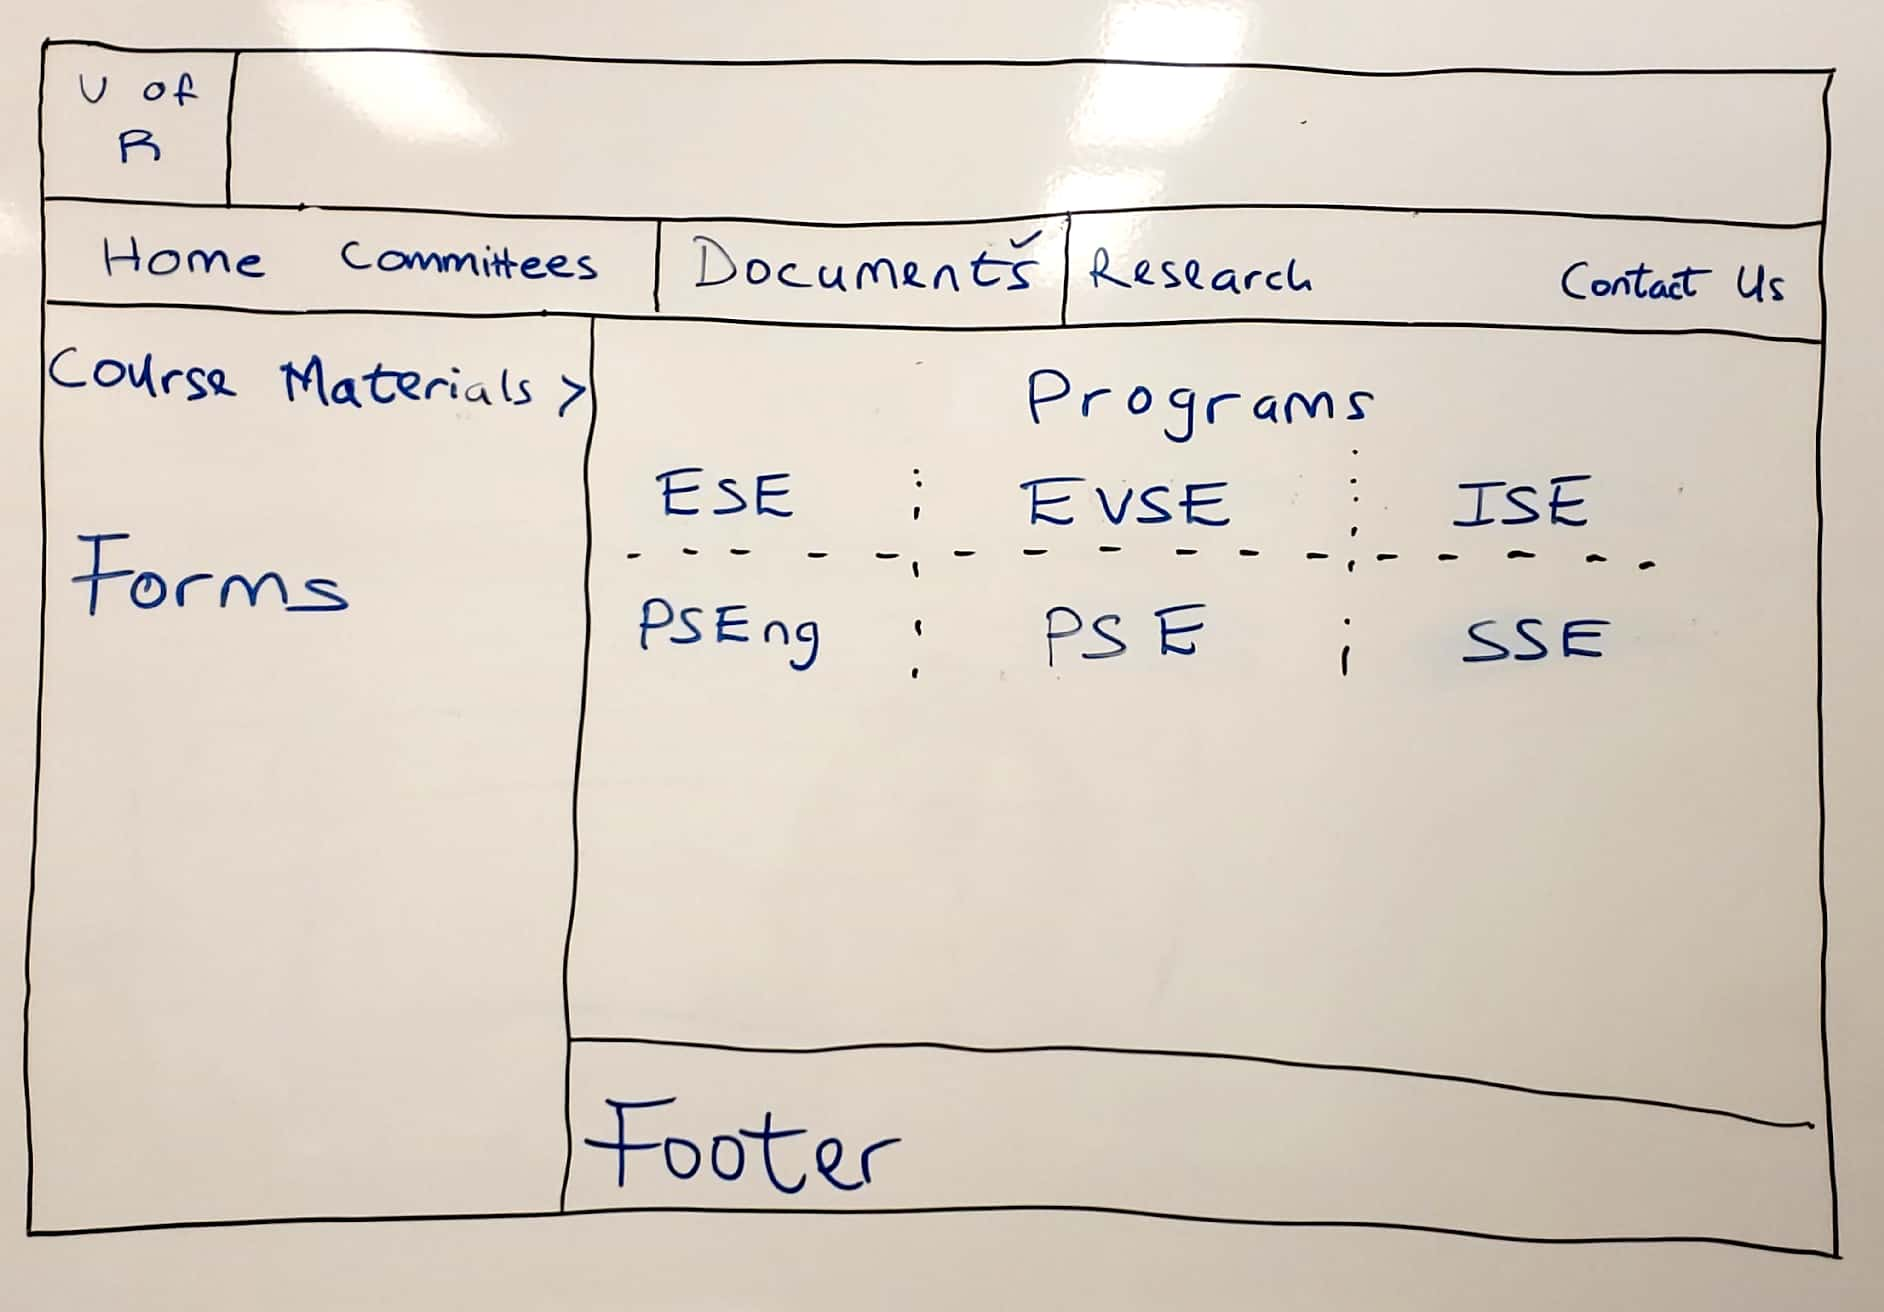 U of
R
Home Committees Documents Research Contact Us
Course Materials >
Forms
Programs
ESE EVSE ISE
PSEng PSE SSE
Footer